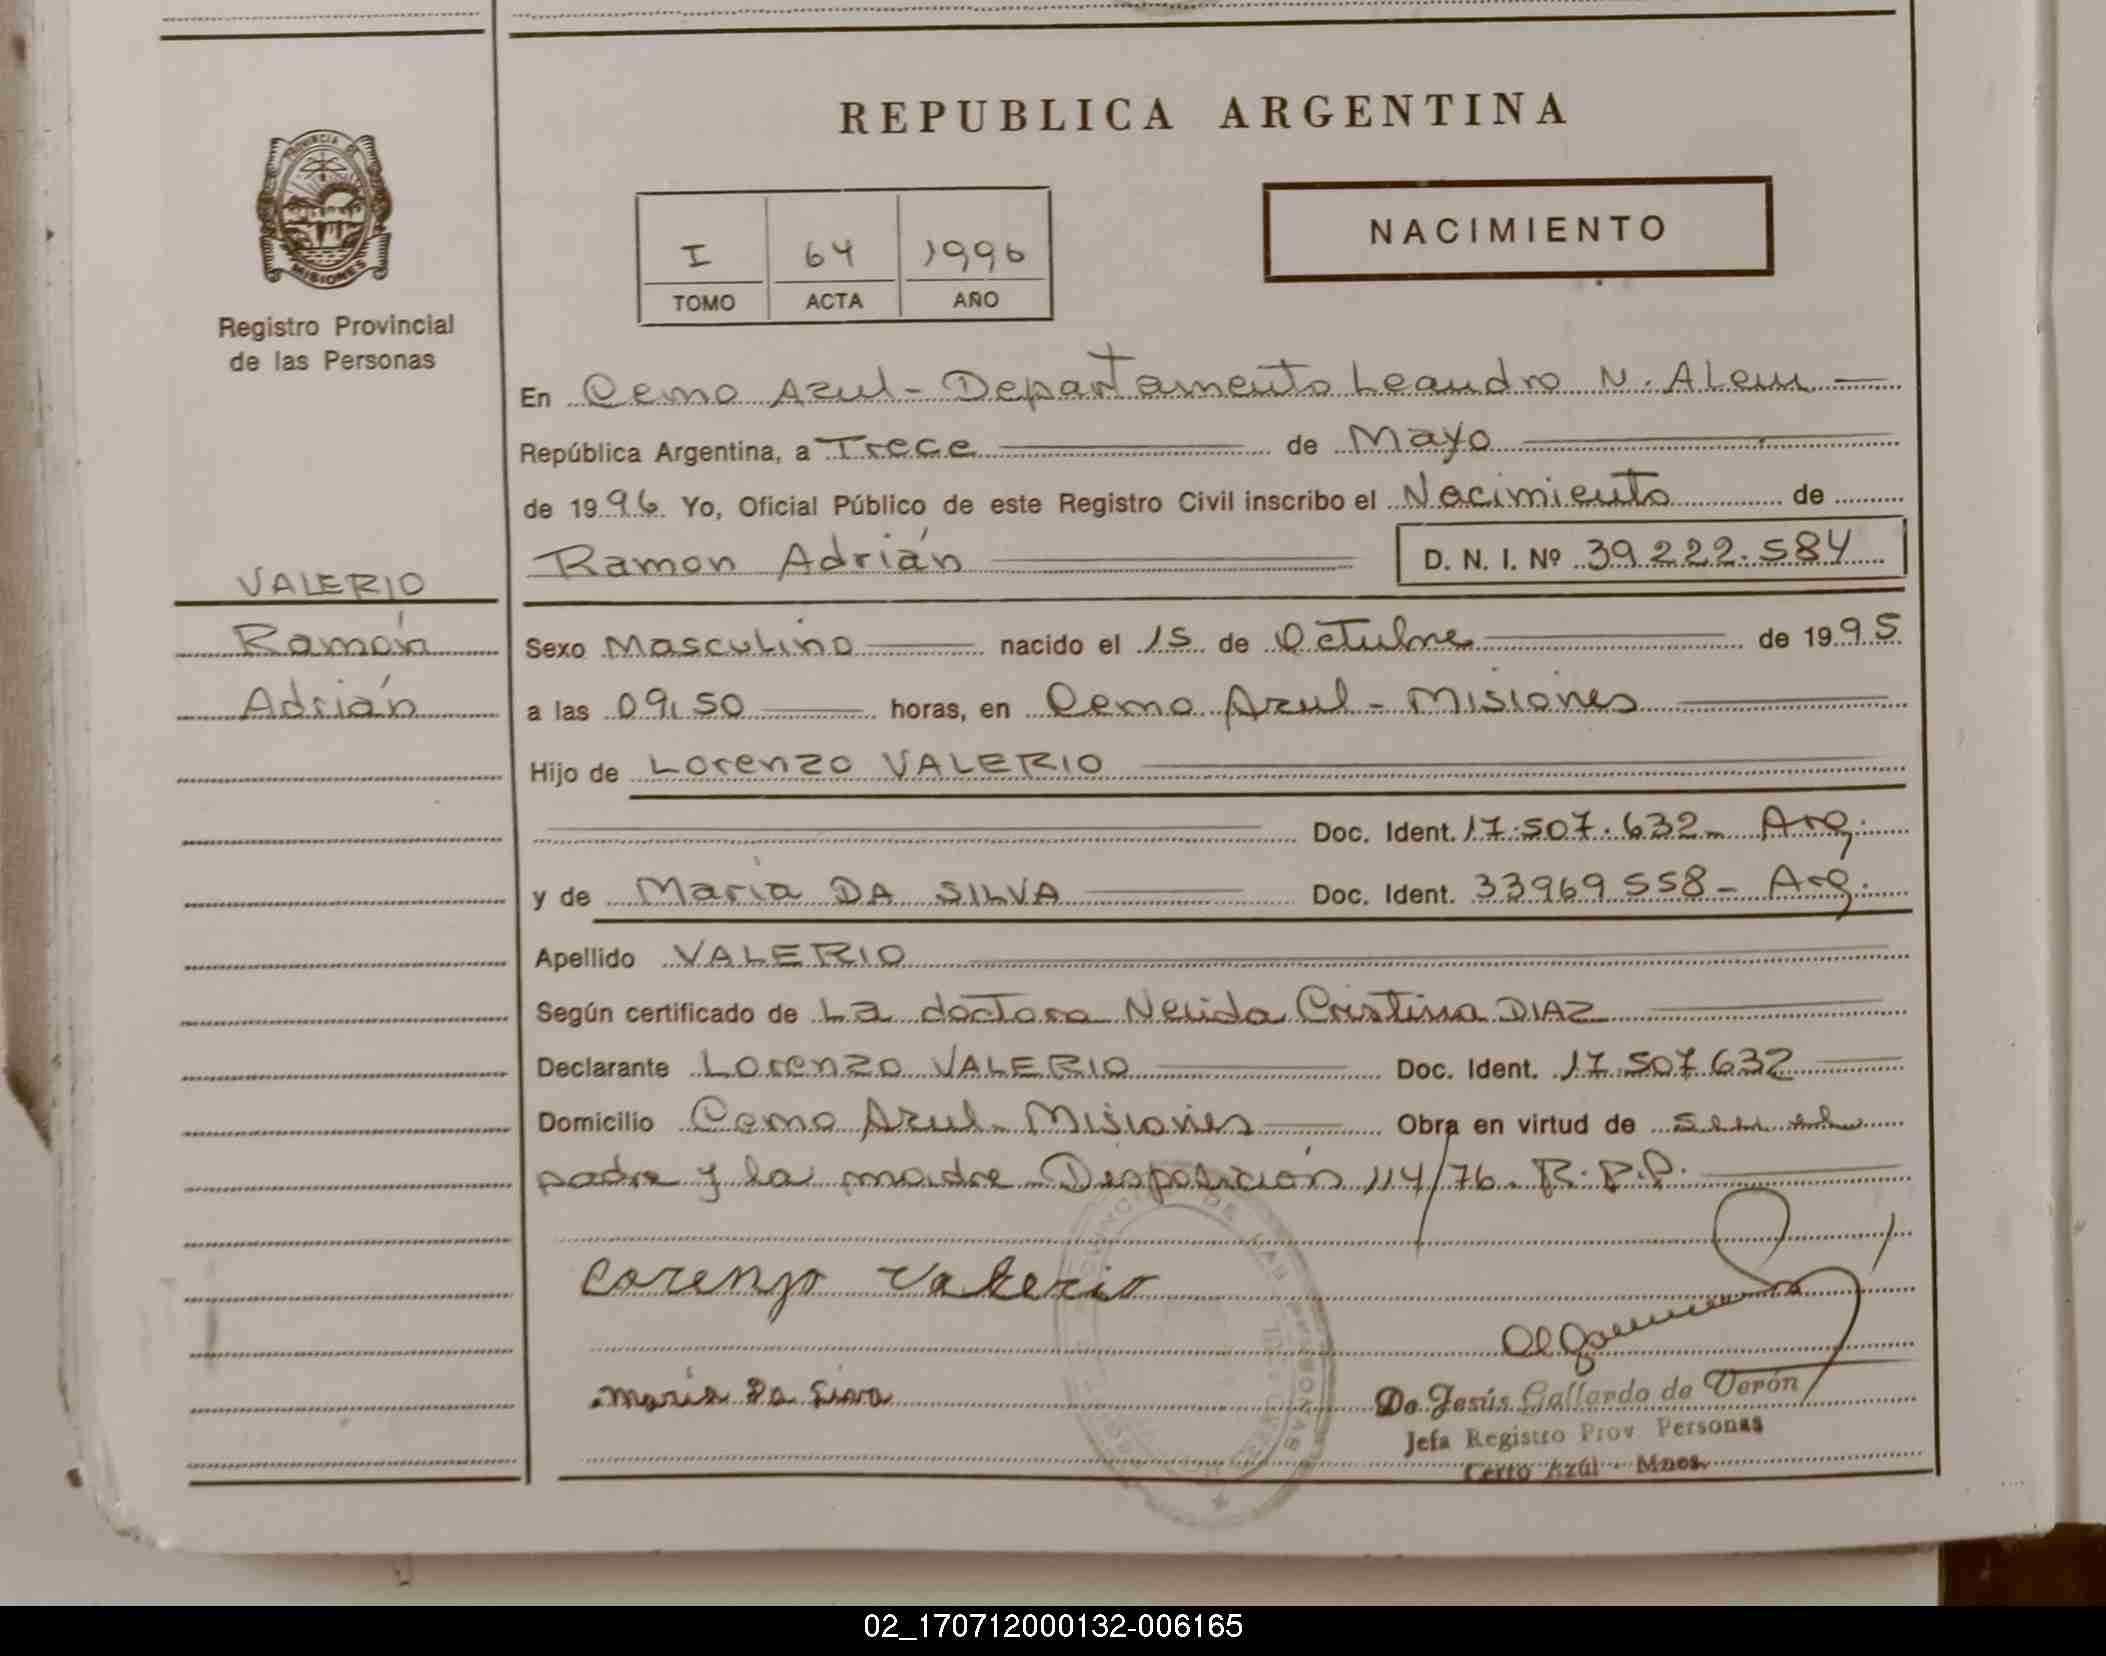 PROVINCIA DE
MISIONES
Registro Provincial
de las Personas
VALERIO
Ramón
Adrián
REPUBLICA ARGENTINA
I 64 1996
TOMO ACTA AÑO
NACIMIENTO
En Cerro Azul - Departamento Leandro N. Alem -
República Argentina, a Trece de Mayo
de 1996 Yo, Oficial Público de este Registro Civil inscribo el Nacimiento de
Ramon Adrián D. N. I. Nº 39.222.584
Sexo Masculino nacido el 15 de Octubre de 1995
a las 09,50 horas, en Cerro Azul - Misiones
Hijo de Lorenzo VALERIO
Doc. Ident. 17.507.632 - Arg.
y de Maria DA SILVA Doc. Ident. 33969558 - Arg.
Apellido VALERIO
Según certificado de La doctora Nelida Cristina DIAZ
Declarante Lorenzo VALERIO Doc. Ident. 17.507.632
Domicilio Cerro Azul - Misiones Obra en virtud de ser el
padre y la madre Disposición 114/76. R.P.P.
Lorenzo Valerio
Maria Da Silva
De Jesús Gallardo de Verón
Jefa Registro Prov Personas
Cerro Azúl - Mnes.
02_170712000132-006165